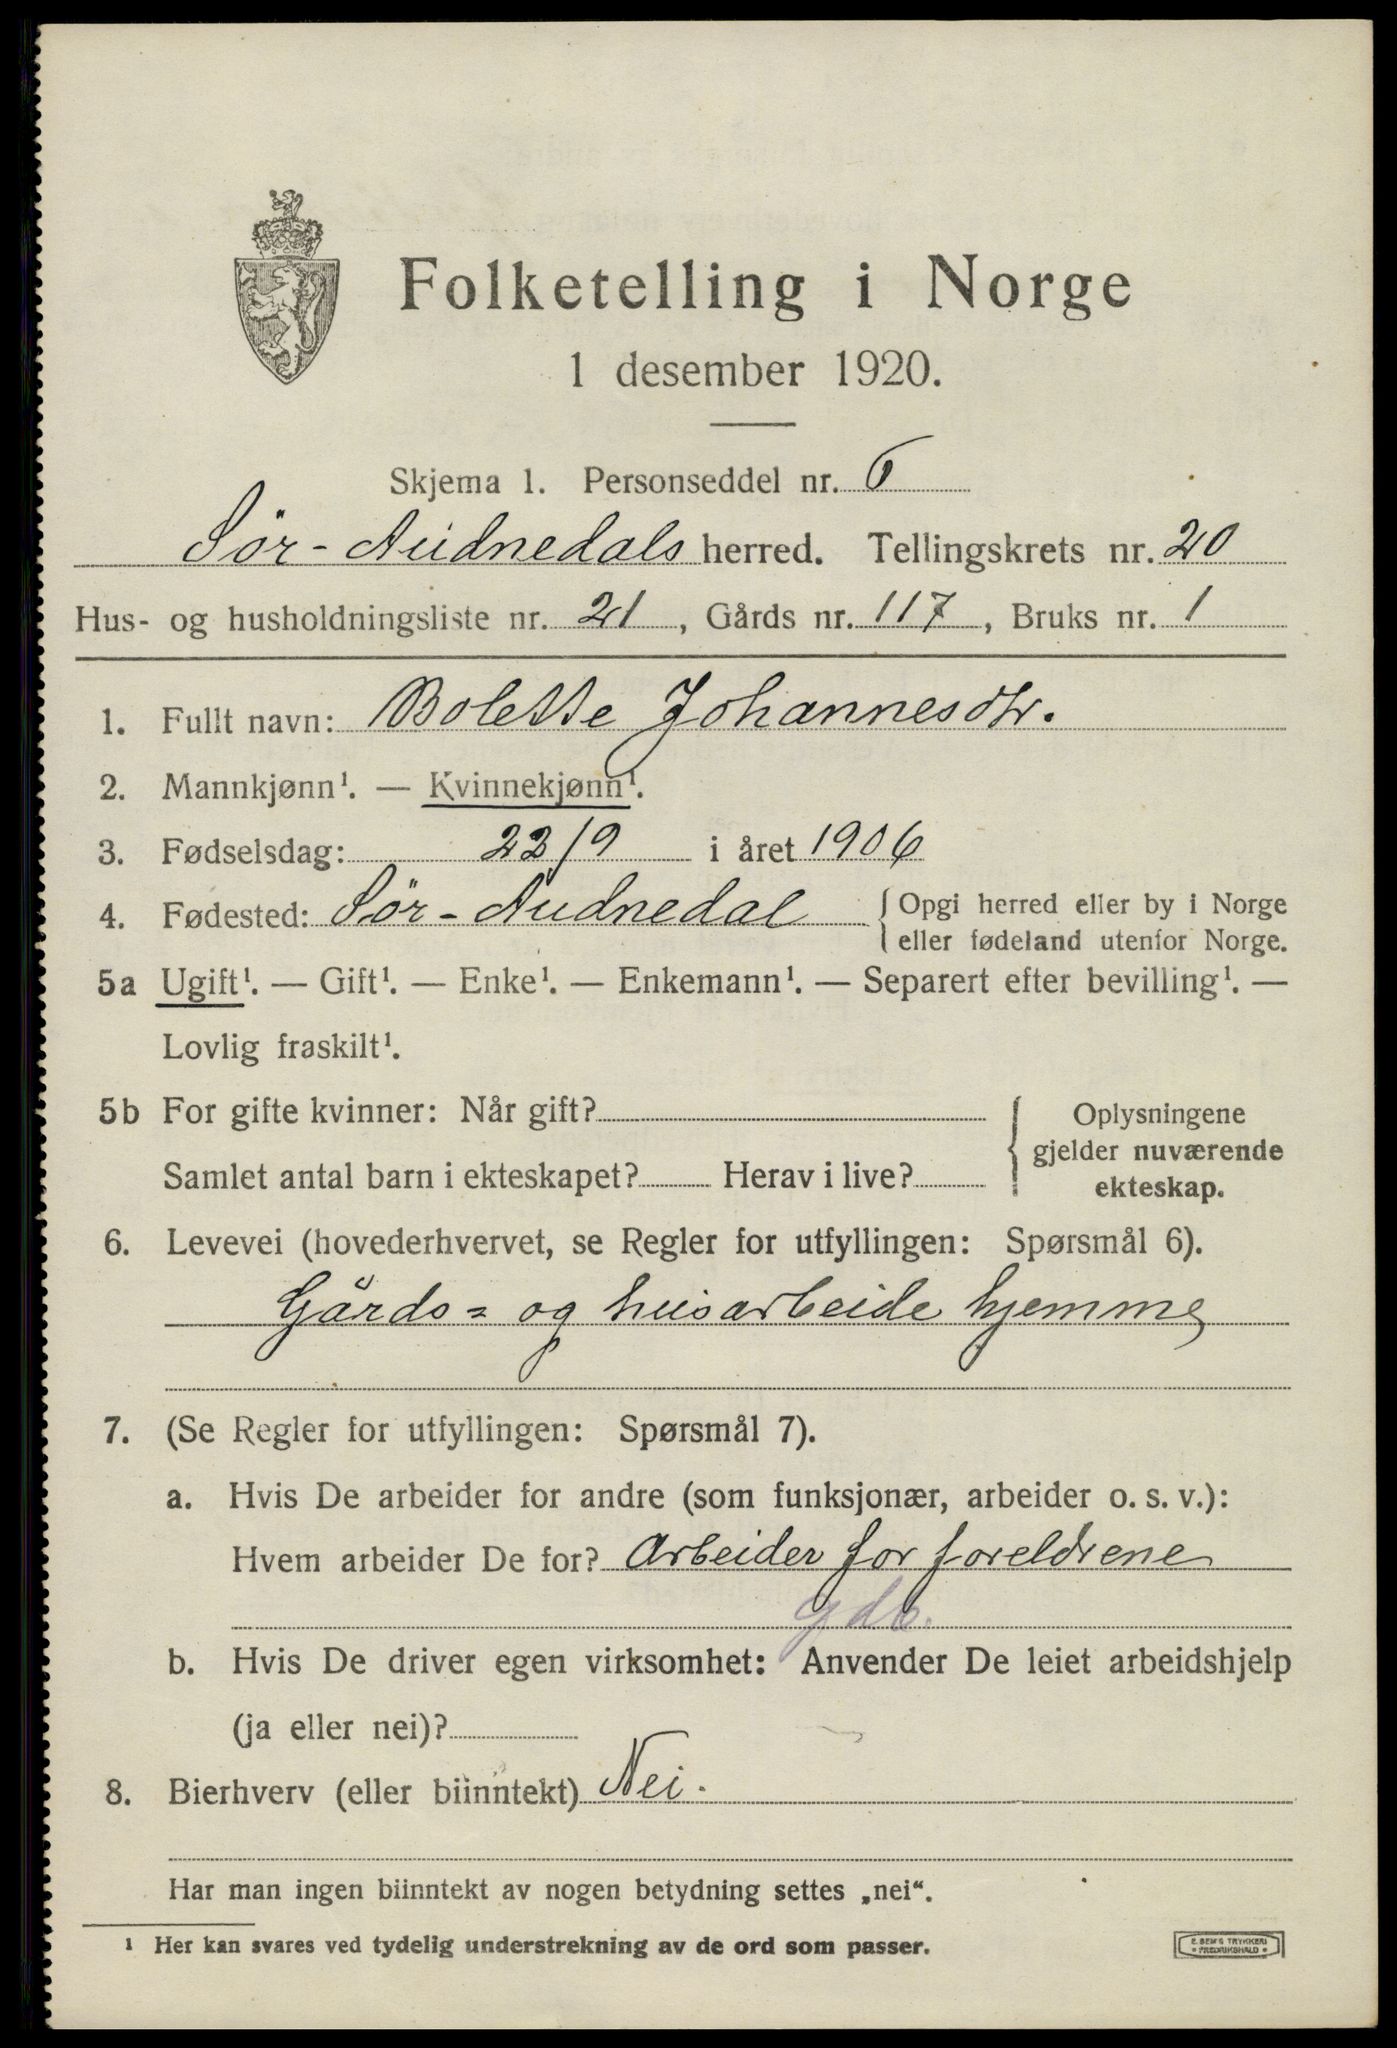 Folketelling i Norge
1 desember 1920.
Skjema 1. Personseddel nr. 6
Sör-Audnedals herred. Tellingskrets nr. 20
Hus- og husholdningsliste nr. 21, Gårds nr. 117, Bruks nr. 1
1. Fullt navn: Bolette Johannesdtr.
2. Mannkjønn¹. — Kvinnekjønn¹.
3. Fødselsdag: 22/9 i året 1906
4. Fødested: Sör-Audnedal { Opgi herred eller by i Norge
eller fødeland utenfor Norge.
5a Ugift¹. — Gift¹. — Enke¹. — Enkemann¹. — Separert efter bevilling¹. —
Lovlig fraskilt¹.
5b For gifte kvinner: Når gift?
Samlet antal barn i ekteskapet? Herav i live?
{ Oplysningene
gjelder nuværende
ekteskap.
6. Levevei (hovederhvervet, se Regler for utfyllingen: Spørsmål 6).
Gårds- og husarbeide hjemme
7. (Se Regler for utfyllingen: Spørsmål 7).
a. Hvis De arbeider for andre (som funksjonær, arbeider o. s. v.):
Hvem arbeider De for? Arbeider for foreldrene
gdb.
b. Hvis De driver egen virksomhet: Anvender De leiet arbeidshjelp
(ja eller nei)?
8. Bierhverv (eller biinntekt) Nei.
Har man ingen biinntekt av nogen betydning settes „nei“.
¹ Her kan svares ved tydelig understrekning av de ord som passer.
E. SEM'S TRYKKERI
• FREDRIKSHALD •